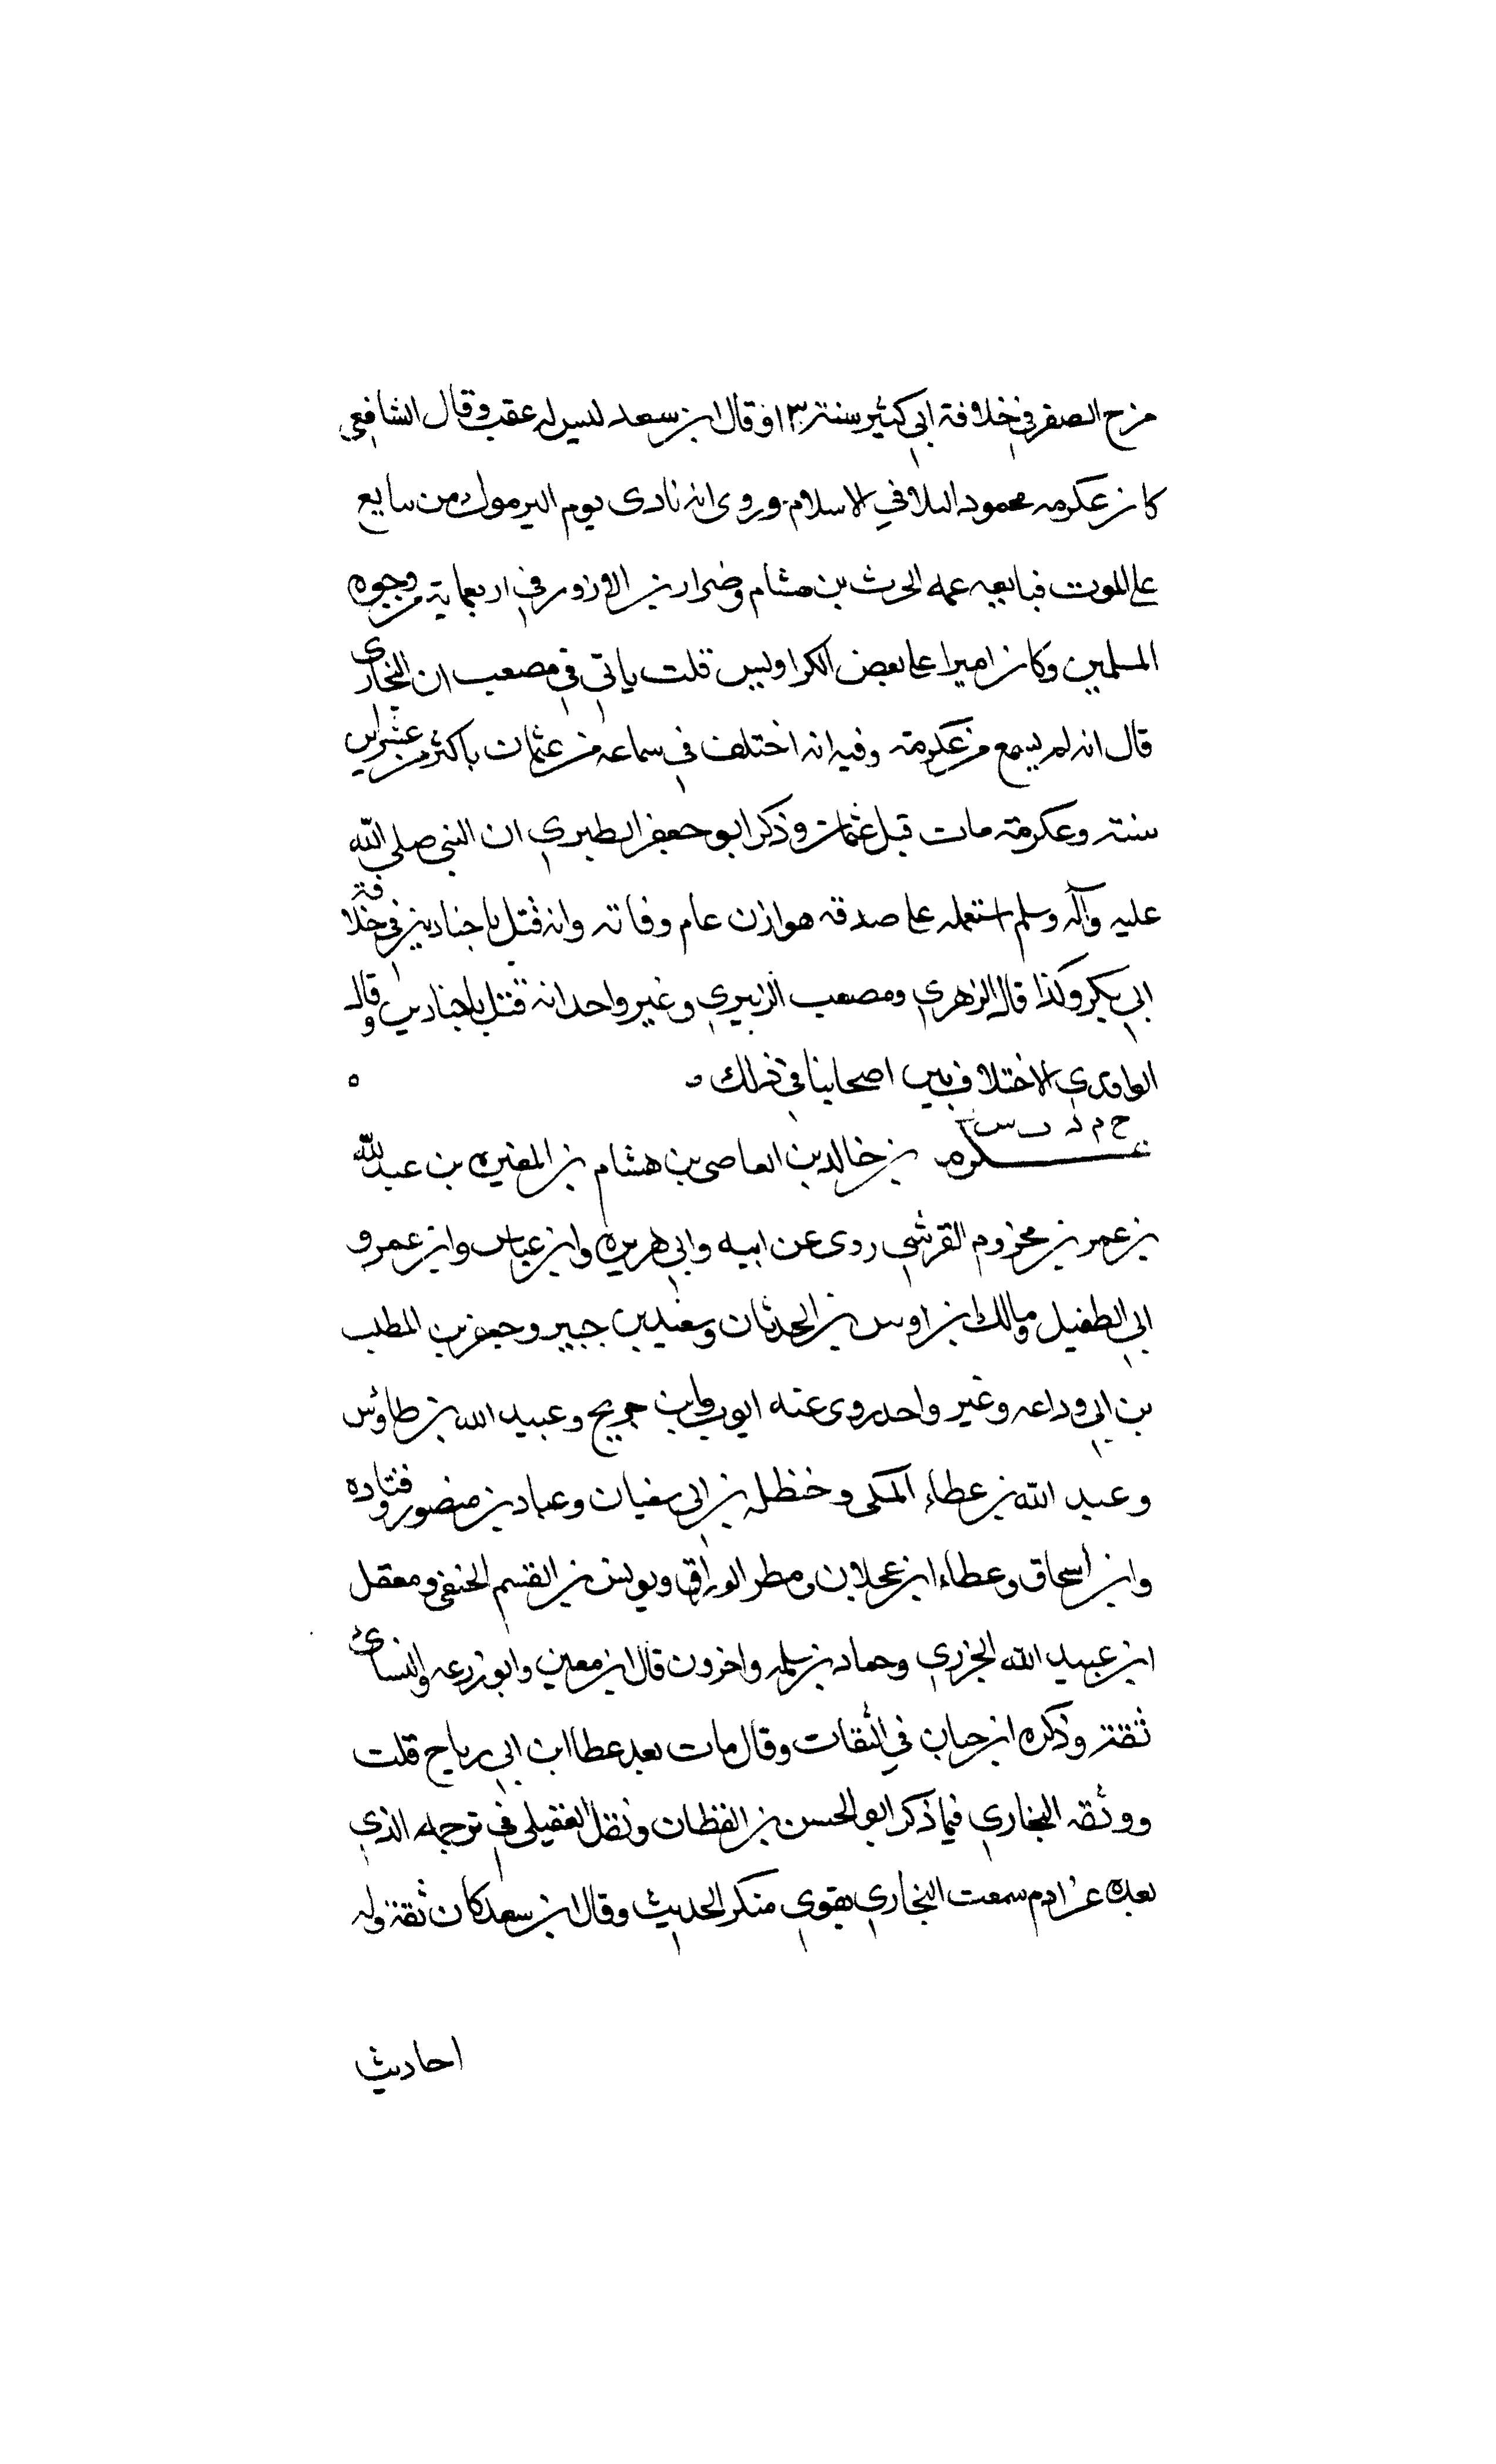 مرج الصفر في خلافة ابي كثير سنة ١٣ وقال ابن سعد ليس له عقب وقال الشافعي
كان عكرمه محمود البلا في الاسلام وروى انه نادى يوم اليرموك من يبايع
على الموت فبايعه عمه الحرث بن هشام وضرار بن الازور في اربعماية من وجوه
المسلمين وكان اميرا على بعض الكراديس قلت ياتي في مصعب ان البخارى
قال انه لم يسمع من عكرمة وفيه انه اختلف في سماعه من عثمان باكثر من عشرين
سنة وعكرمة مات قبل عثمان وذكر ابو جعفر الطبري ان النبي صلى الله
عليه وآله وسلم استعمله على صدقه هوازن عام وفاته وانه قتل باجنادين في خلافة
ابي بكر وكذا قال الزهري ومصعب الزبيري وغير واحد انه قتل باجنادين وقال
الواقدي لا اختلاف بين اصحابنا في ذلك ه ه
خ م د ت س
عكرمه بن خالد بن العاصى بن هشام بن المغيره بن عبد الله
بن عمر بن مخزوم القرشي روى عن ابيه وابي هريره وابن عباس وابن عمر و
ابي الطفيل ومالك ابن اوس بن الحدثان وسعيد بن جبير وجعفر بن المطلب
بن ابي وداعه وغير واحد روى عنه ايوب وابن جريج وعبيد الله بن طاوس
وعبد الله بن عطاء المكى وحنظله بن ابي سفيان وعباد بن منصور وقتاده
وابن اسحاق وعطاء ابن عجلان ومطر الوراق ويونس بن القسم الحنفي ومعقل
ابن عبيد الله الجزري وحماد بن سلمه واخرون قال ابن معين وابو زرعه والنسائ
ثقة وذكره ابن حبان في الثقات وقال مات بعد عطا ابن ابي رباح قلت
ووثقه البخاري فيما ذكر ابو الحسن بن القطان ونقل العقيلي في ترجمه الذي
بعده عن ادم سمعت البخاري يقوي منكر الحديث وقال ابن سعد كان ثقة وله
احاديث